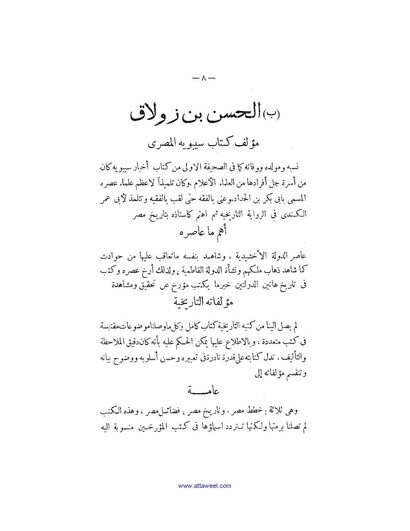 — ٨ —
(ب) الحسن بن زولاق
مؤلف كتاب سيبويه المصرى
نسبه ومولده ووفاته كما فى الصحيفة الاولى من كتاب أخبار سيبويه كان
من أسرة جل أفرادها من العلماء الأعلام وكان تلميذاً لاعظم علماء عصره
المسمى بابى بكر بن الحداد وعنى بالفقه حتى لقب بالفقيه وتتلمذ لأبى عمر
الكندى فى الرواية التاريخية ثم اهتم كاستاذه بتاريخ مصر
أهم ما عاصره
عاصر الدولة الأخشيدية ، وشاهد بنفسه ماتعاقب عليها من حوادث
كما شاهد ذهاب ملكهم ونشأة الدولة الفاطمية ، ولذلك أرخ عصره وكتب
فى تاريخ هاتين الدولتين خير ما يكتب مؤرخ عن تحقيق ومشاهدة
مؤلفاته التاريخية
لم يصل الينا من كتبه التاريخية كتاب كامل وكل ما وصلنا موضوعات مقتبسة
فى كتب متعددة ، وبالاطلاع عليها يمكن الحكم عليه بأنه كان دقيق الملاحظة
والتأليف ، تدل كتابته على قدرة نادرة فى تعبيره وحسن أسلوبه ووضوح بيانه
وتنقسم مؤلفاته إلى
عامـــة
وهى ثلاثة : خطط مصر ، وتاريخ مصر ، فضائل مصر ، وهذه الكتب
لم تصلنا برمتها ولكنها تتردد اسماؤها فى كتب المؤرخين منسوبة اليه
www.attaweel.com